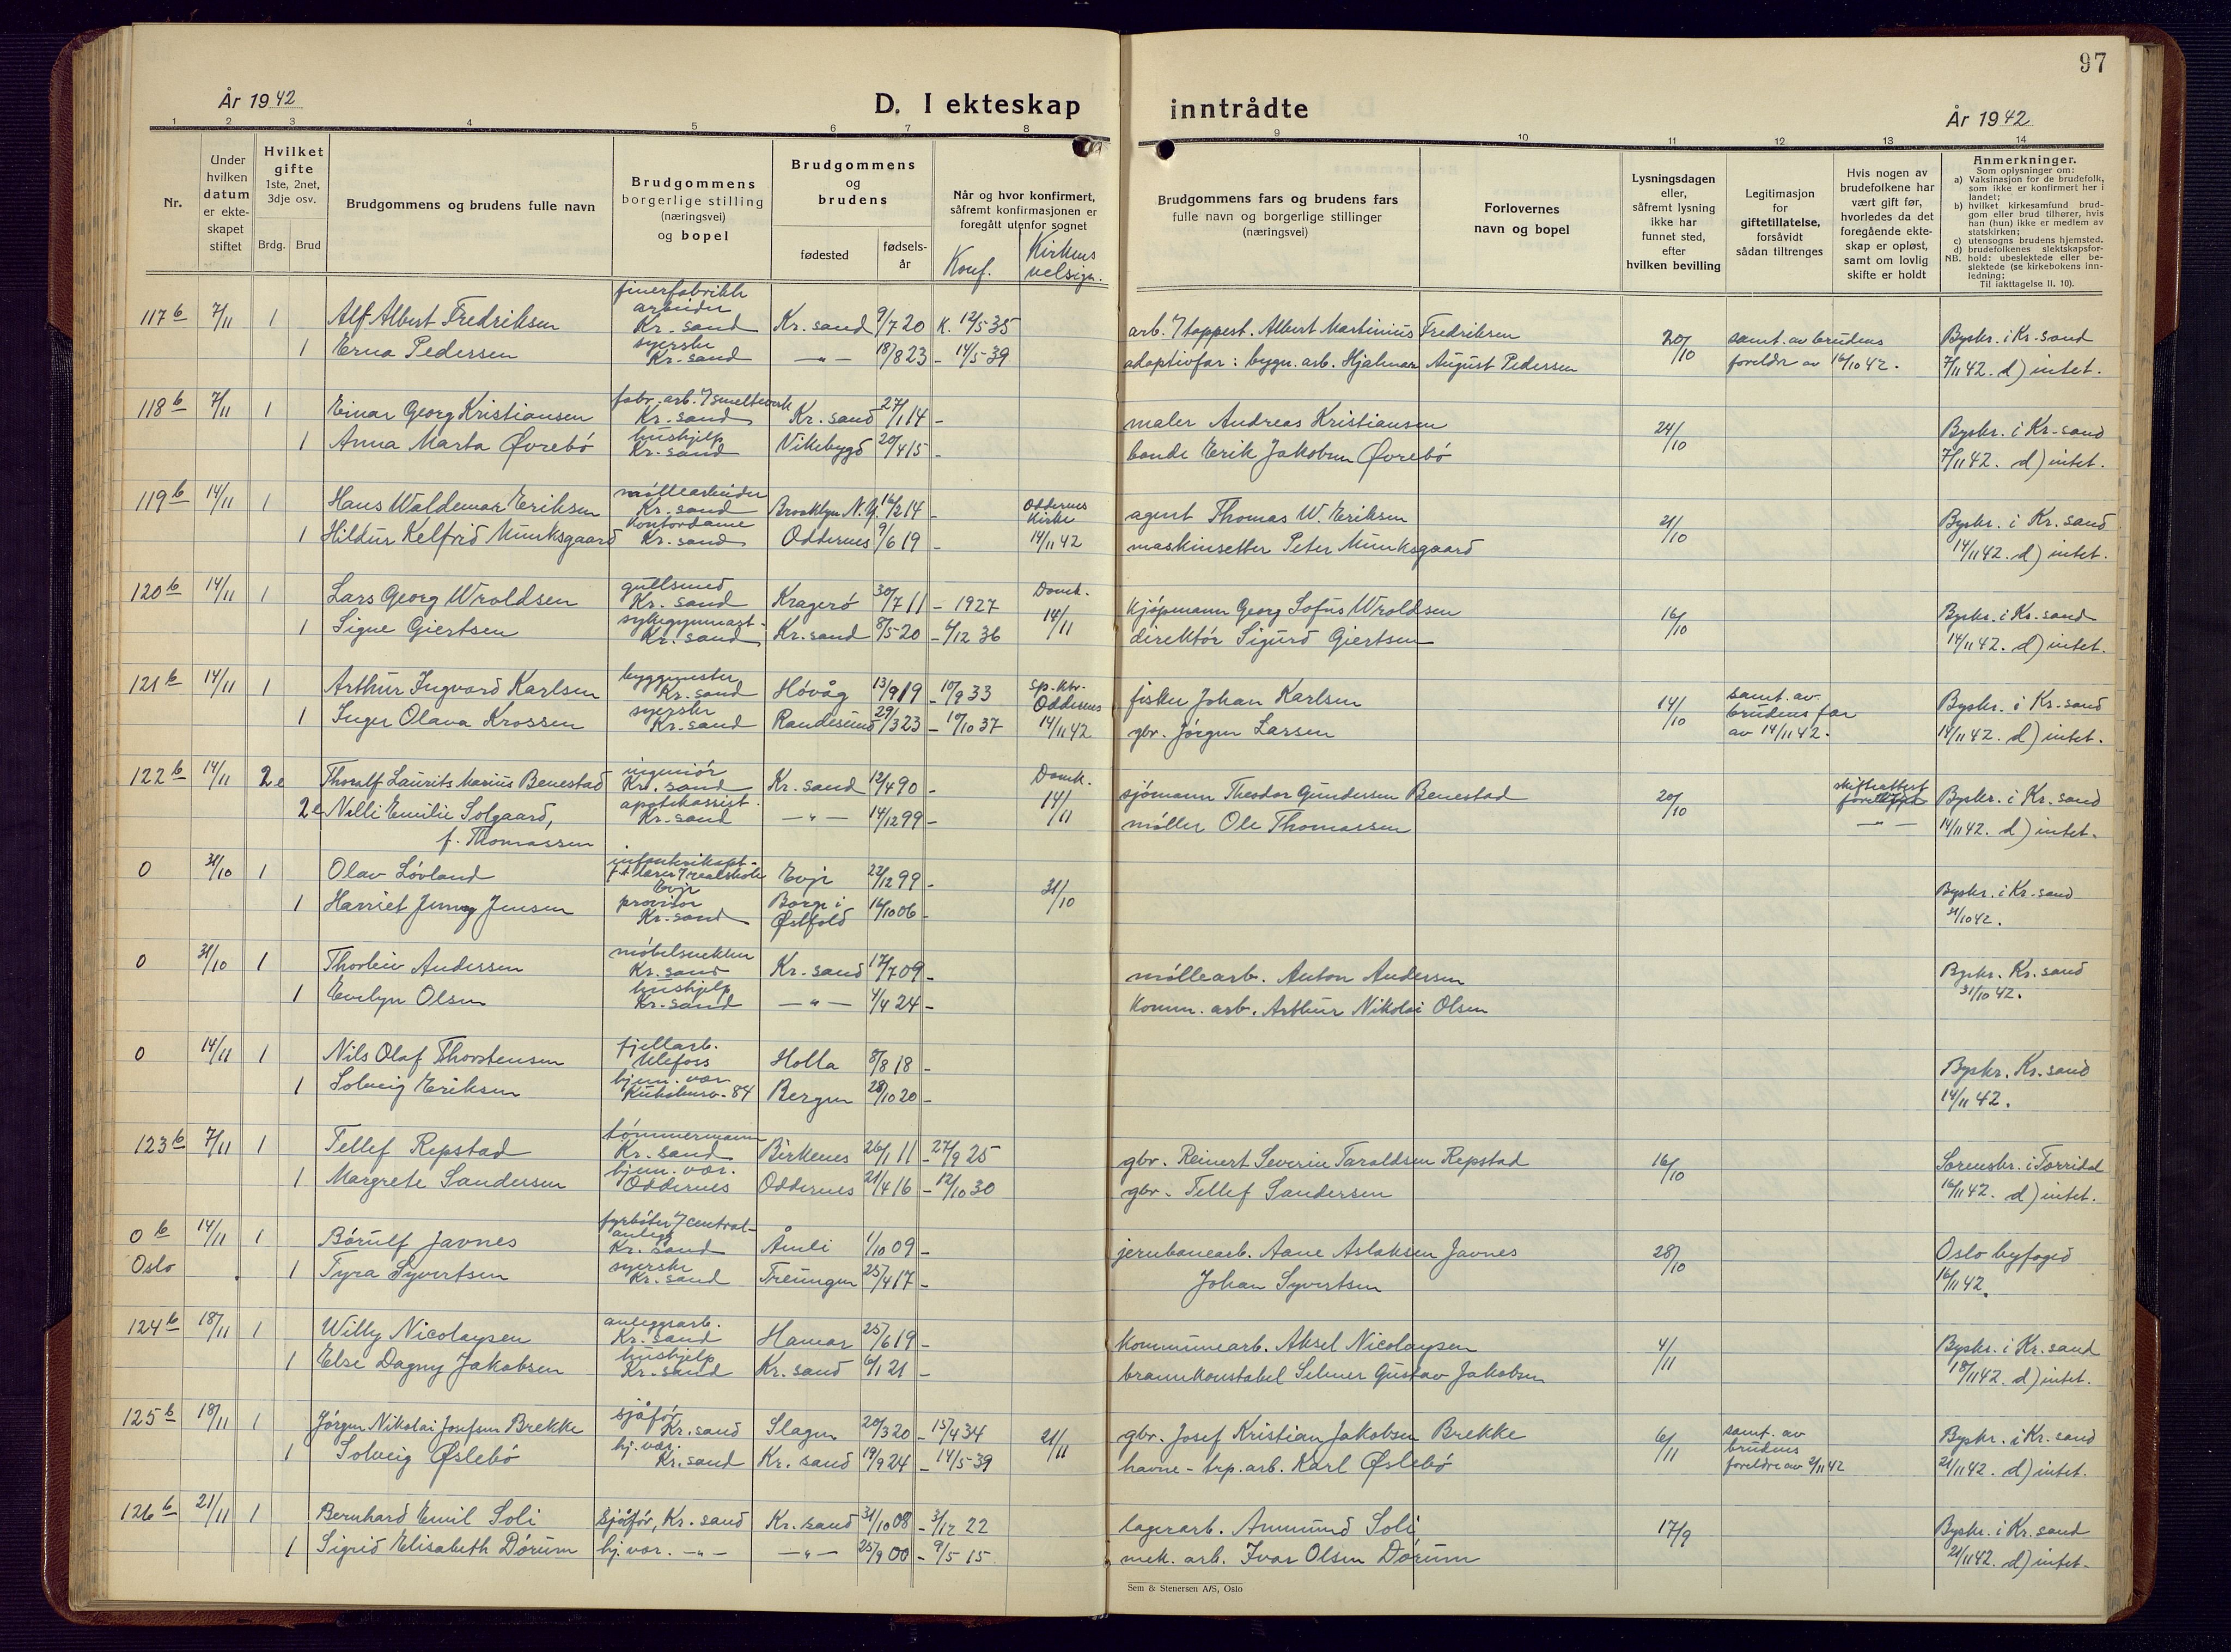 97
År 1942
D. I ekteskap inntrådte
År 1942
1 2 3 4 5 6 7 8 9 10 11 12 13 14
Nr.
Under hvilken datum er ekte-skapet stiftet
Hvilket gifte 1ste, 2net, 3dje osv.
Brdg. Brud
Brudgommens og brudens fulle navn
Brudgommens borgerlige stilling (næringsvei) og bopel
Brudgommens og brudens
fødested
fødsels-år
Når og hvor konfirmert, såfremt konfirmasjonen er foregått utenfor sognet
Konf.
Kirkens velsign.
Brudgommens fars og brudens fars fulle navn og borgerlige stillinger (næringsvei)
Forlovernes navn og bopel
Lysningsdagen eller, såfremt lysning ikke har funnet sted, efter hvilken bevilling
Legitimasjon for giftetillatelse, forsåvidt sådan tiltrenges
Hvis nogen av brudefolkene har vært gift før, hvorledes da det foregående ekte-skap er opløst, samt om lovlig skifte er holdt
Anmerkninger.
Som oplysninger om:
a) Vaksinasjon for de brudefolk, som ikke er konfirmert her i landet;
b) hvilket kirkesamfund brud-gom eller brud tilhører, hvis han (hun) ikke er medlem av statskirken;
c) utensogns brudens hjemsted.
d) brudefolkenes slektskapsfor-hold: ubeslektede eller be-slektede (se kirkebokens inn-ledning;
NB.
Til iakttagelse II, 10).
117 b 7/11 1 Alf Albert Fredriksen finerfabrikk arbeider Kr. sand Kr. sand 9/7 20 K. 12/5 35 arb. 7 toppest. Albert Martinius Fredriksen 20/10 samt. av brudens Byskr. i Kr. sand
1 Erna Pedersen syerske Kr. sand -"- 18/8 23 - 14/5 39 adoptivfar: bygn. arb. Hjalmar August Pedersen foreldr av 16/10 42. 7/11 42. d) intet.
118 b 7/11 1 Einar Georg Kristiansen fabr. arb. 7 smeltverk Kr. sand Kr. sand 27/1 14 - maler Andreas Kristiansen 24/10 Byskr. i Kr. sand
1 Anna Marta Øvrebö hushjelp Kr. sand Vikebygd 20/4 15 - bonde Erik Jakobsen Øvrebö 7/11 42. d) intet.
119 b 14/11 1 Hans Waldemar Eriksen möllearbeider Kr. sand Brooklyn N.Y. 16/2 14 - Oddernes Kirke agent Thomas W. Eriksen 21/10 Byskr. i Kr. sand
1 Hildur Kelfrid Munksgaard kontordame Kr. sand Oddernes 9/6 19 - 14/11 42 maskinsetter Peter Munksgaard 14/11 42. d) intet.
120 b 14/11 1 Lars Georg Wroldsen gullsmed Kr. sand Kragerö 30/7 11 - 1927 Domk. kjöpmann Georg Sofus Wroldsen 16/10 Byskr. i Kr. sand
1 Signe Giertsen sykegymnast. Kr. sand Kr. sand 8/5 20 - 6/12 36 14/11 direktör Sigurd Giertsen 14/11 42. d) intet.
121 b 14/11 1 Arthur Ingvard Karlsen byggmester Kr. sand Hövåg 13/9 19 - 10/9 33 sp. kbr. Oddernes fisker Johan Karlsen 14/10 samt. av brudens far Byskr. i Kr. sand
1 Inger Olava Krossen syerske Kr. sand Randesund 29/3 23 - 10/10 37 14/11 42 gbr. Jörgen Larsen av 14/11 42. 14/11 42. d) intet.
122 b 14/11 2e Thoralf Laurits Marius Benestad ingeniör Kr. sand Kr. sand 12/4 90 - Domk. sjömann Theodor Gundersen Benestad 20/10 skifteattest Byskr. i Kr. sand
2e Nelli Emilie Solgaard, apotekassist. Kr. sand -"- 14/12 99 - 14/11 möller Ole Thomassen -"- 14/11 42. d) intet.
f. Thomassen
0 31/10 1 Olav Lövland Evje Evje 22/12 99 - Byskr. i Kr. sand
1 Harriet Jensen provisor Kr. sand Borge i Østfold 16/10 06 - 31/10 31/10 42.
0 31/10 1 Thorleiv Andersen möbelsnekker Kr. sand Kr. sand 17/7 09 - möllearb. Anton Andersen Byskr. Kr. sand
1 Evelyn Olsen hushjelp Kr. sand -"- 4/4 24 - komm. arb. Arthur Nikolai Olsen 31/10 42.
0 14/11 1 Nils Olaf Thorstensen fjellarb. Ulefoss Holla 8/8 18 - Byskr. Kr. sand
1 Solveig Eriksen hjem. vær. 84 Bergen 28/10 20 - 14/11 42.
123 b 7/11 1 Tellef Repstad tömmermann Kr. sand Birkenes 26/1 11 - 27/9 25 gbr. Reinert Severin Taraldsen Repstad 16/10 Sorenskr. i Torridal
1 Margrete Sandersen hjem. vær. Oddernes Oddernes 21/4 16 - 12/10 30 gbr. Tellef Sandersen 16/11 42. d) intet.
0 b 14/11 1 Börulf Javnes fyrböter 7 central-anlegg Kr. sand Åmli 1/10 09 - jernbanearb. Aane Aslaksen Javnes 28/10 Oslo byfoged
Oslo 1 Tyra Syvertsen syerske Kr. sand Treungen 25/4 17 - Johan Syvertsen 16/11 42.
124 b 18/11 1 Willy Nicolaysen anleggsarb. Kr. sand Hamar 25/6 19 - kommunearb. Aksel Nicolaysen 4/11 Byskr. i Kr. sand
1 Else Dagny Jakobsen hushjelp Kr. sand Kr. sand 6/1 21 - brannkonstabel Selmer Gustav Jakobsen 18/11 42. d) intet.
125 b 18/11 1 Jörgen Nikolai Josefsen Brekke sjåför Kr. sand Slagen 20/3 20 - 15/4 34 21/11 gbr. Josef Kristian Jakobsen Brekke 6/11 samt. av brudens Byskr. i Kr. sand
1 Solveig Øslebö hj. vær. Kr. sand Kr. sand 19/9 24 - 14/5 39 havne- trp. arb. Karl Øslebö foreldre av 2/11 42 21/11 42. d) intet.
126 b 21/11 1 Bernhard Emil Soli Sjåför, Kr. sand Kr. sand 31/10 08 - 3/12 22 lagerarb. Ammund Soli 17/9 Byskr. i Kr. sand
1 Sigrid Elisabeth Dörum hj. vær. -"- -"- 25/9 00 - 9/5 15 mek. arb. Ivar Olsen Dörum 21/11 42. d) intet.
Sem & Stenersen A/S, Oslo